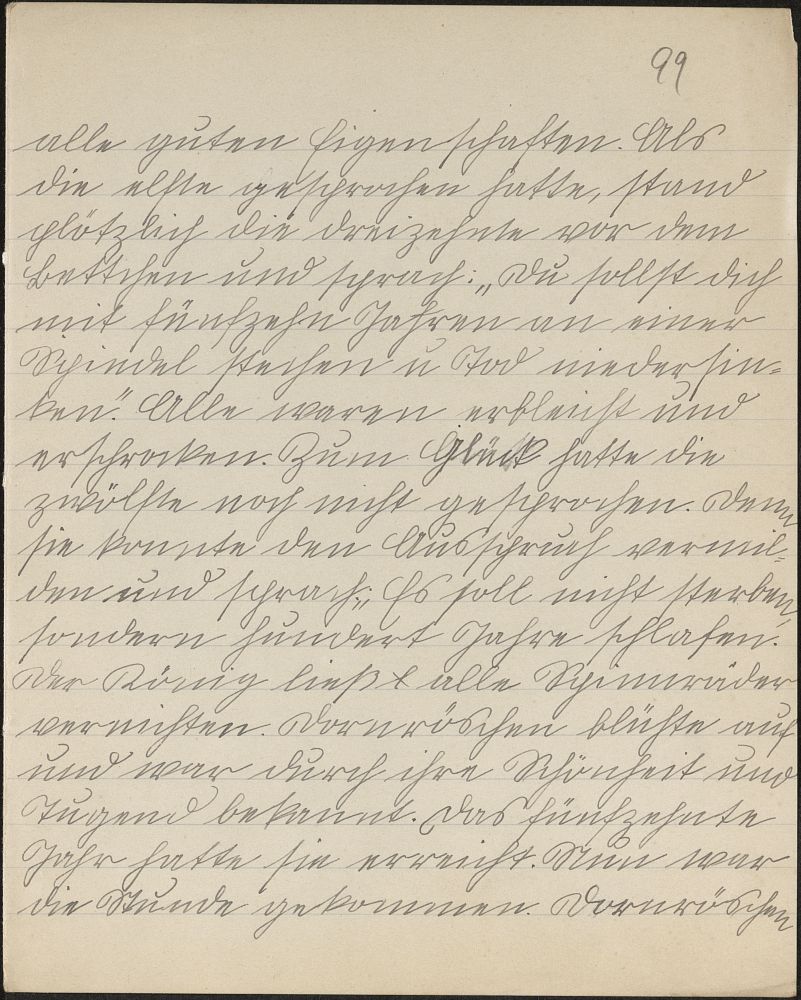 99
alle guten Eigenschaften. Als
die elfte gesprochen hatte, stand
plötzlich die dreizehnte vor dem
Bettchen und sprach: „Du sollst dich
mit fünfzehn Jahren an einer
Spindel stechen u Tod niedersin-
ken." Alle waren erbleicht und
erschrocken. Zum Glück hatte die
zwölfte noch nicht gesprochen. Denn
sie konnte den Ausspruch vermil-
den und sprach: „Es soll nicht sterben,
sondern hundert Jahre schlafen.
Der König ließ alle Spinnräder
vernichten. Dornröschen blühte auf
und war durch ihre Schönheit und
Tugend bekannt. Das fünfzehnte
Jahr hatte sie erreicht. Nun war
die Stunde gekommen. Dornröschen